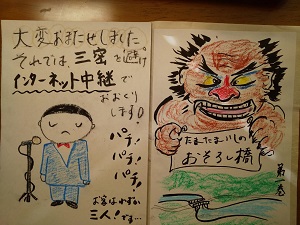 大変おまたせしました
それでは、三密を避け
インターネット中継で
おおくり
します♪
パチ!
パチ!
パチ!
お客はわずか
三人!です…
たまたまいしの
おそろし橋
第一巻